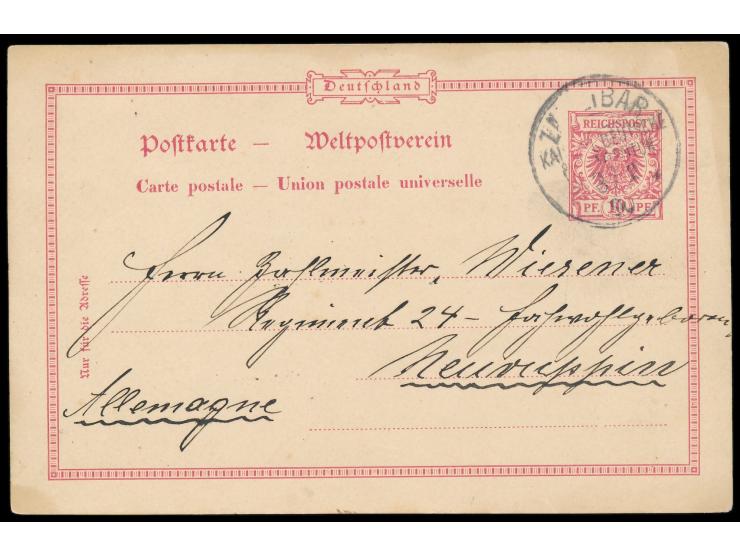 Deutschland
Postkarte — Weltpostverein
Carte postale — Union postale universelle
REICHSPOST
PF. 10 PF.
Nur für die Adresse
Herrn Zahlmeister Wiesener
Regiment 24 –
Neuruppin
Allemagne